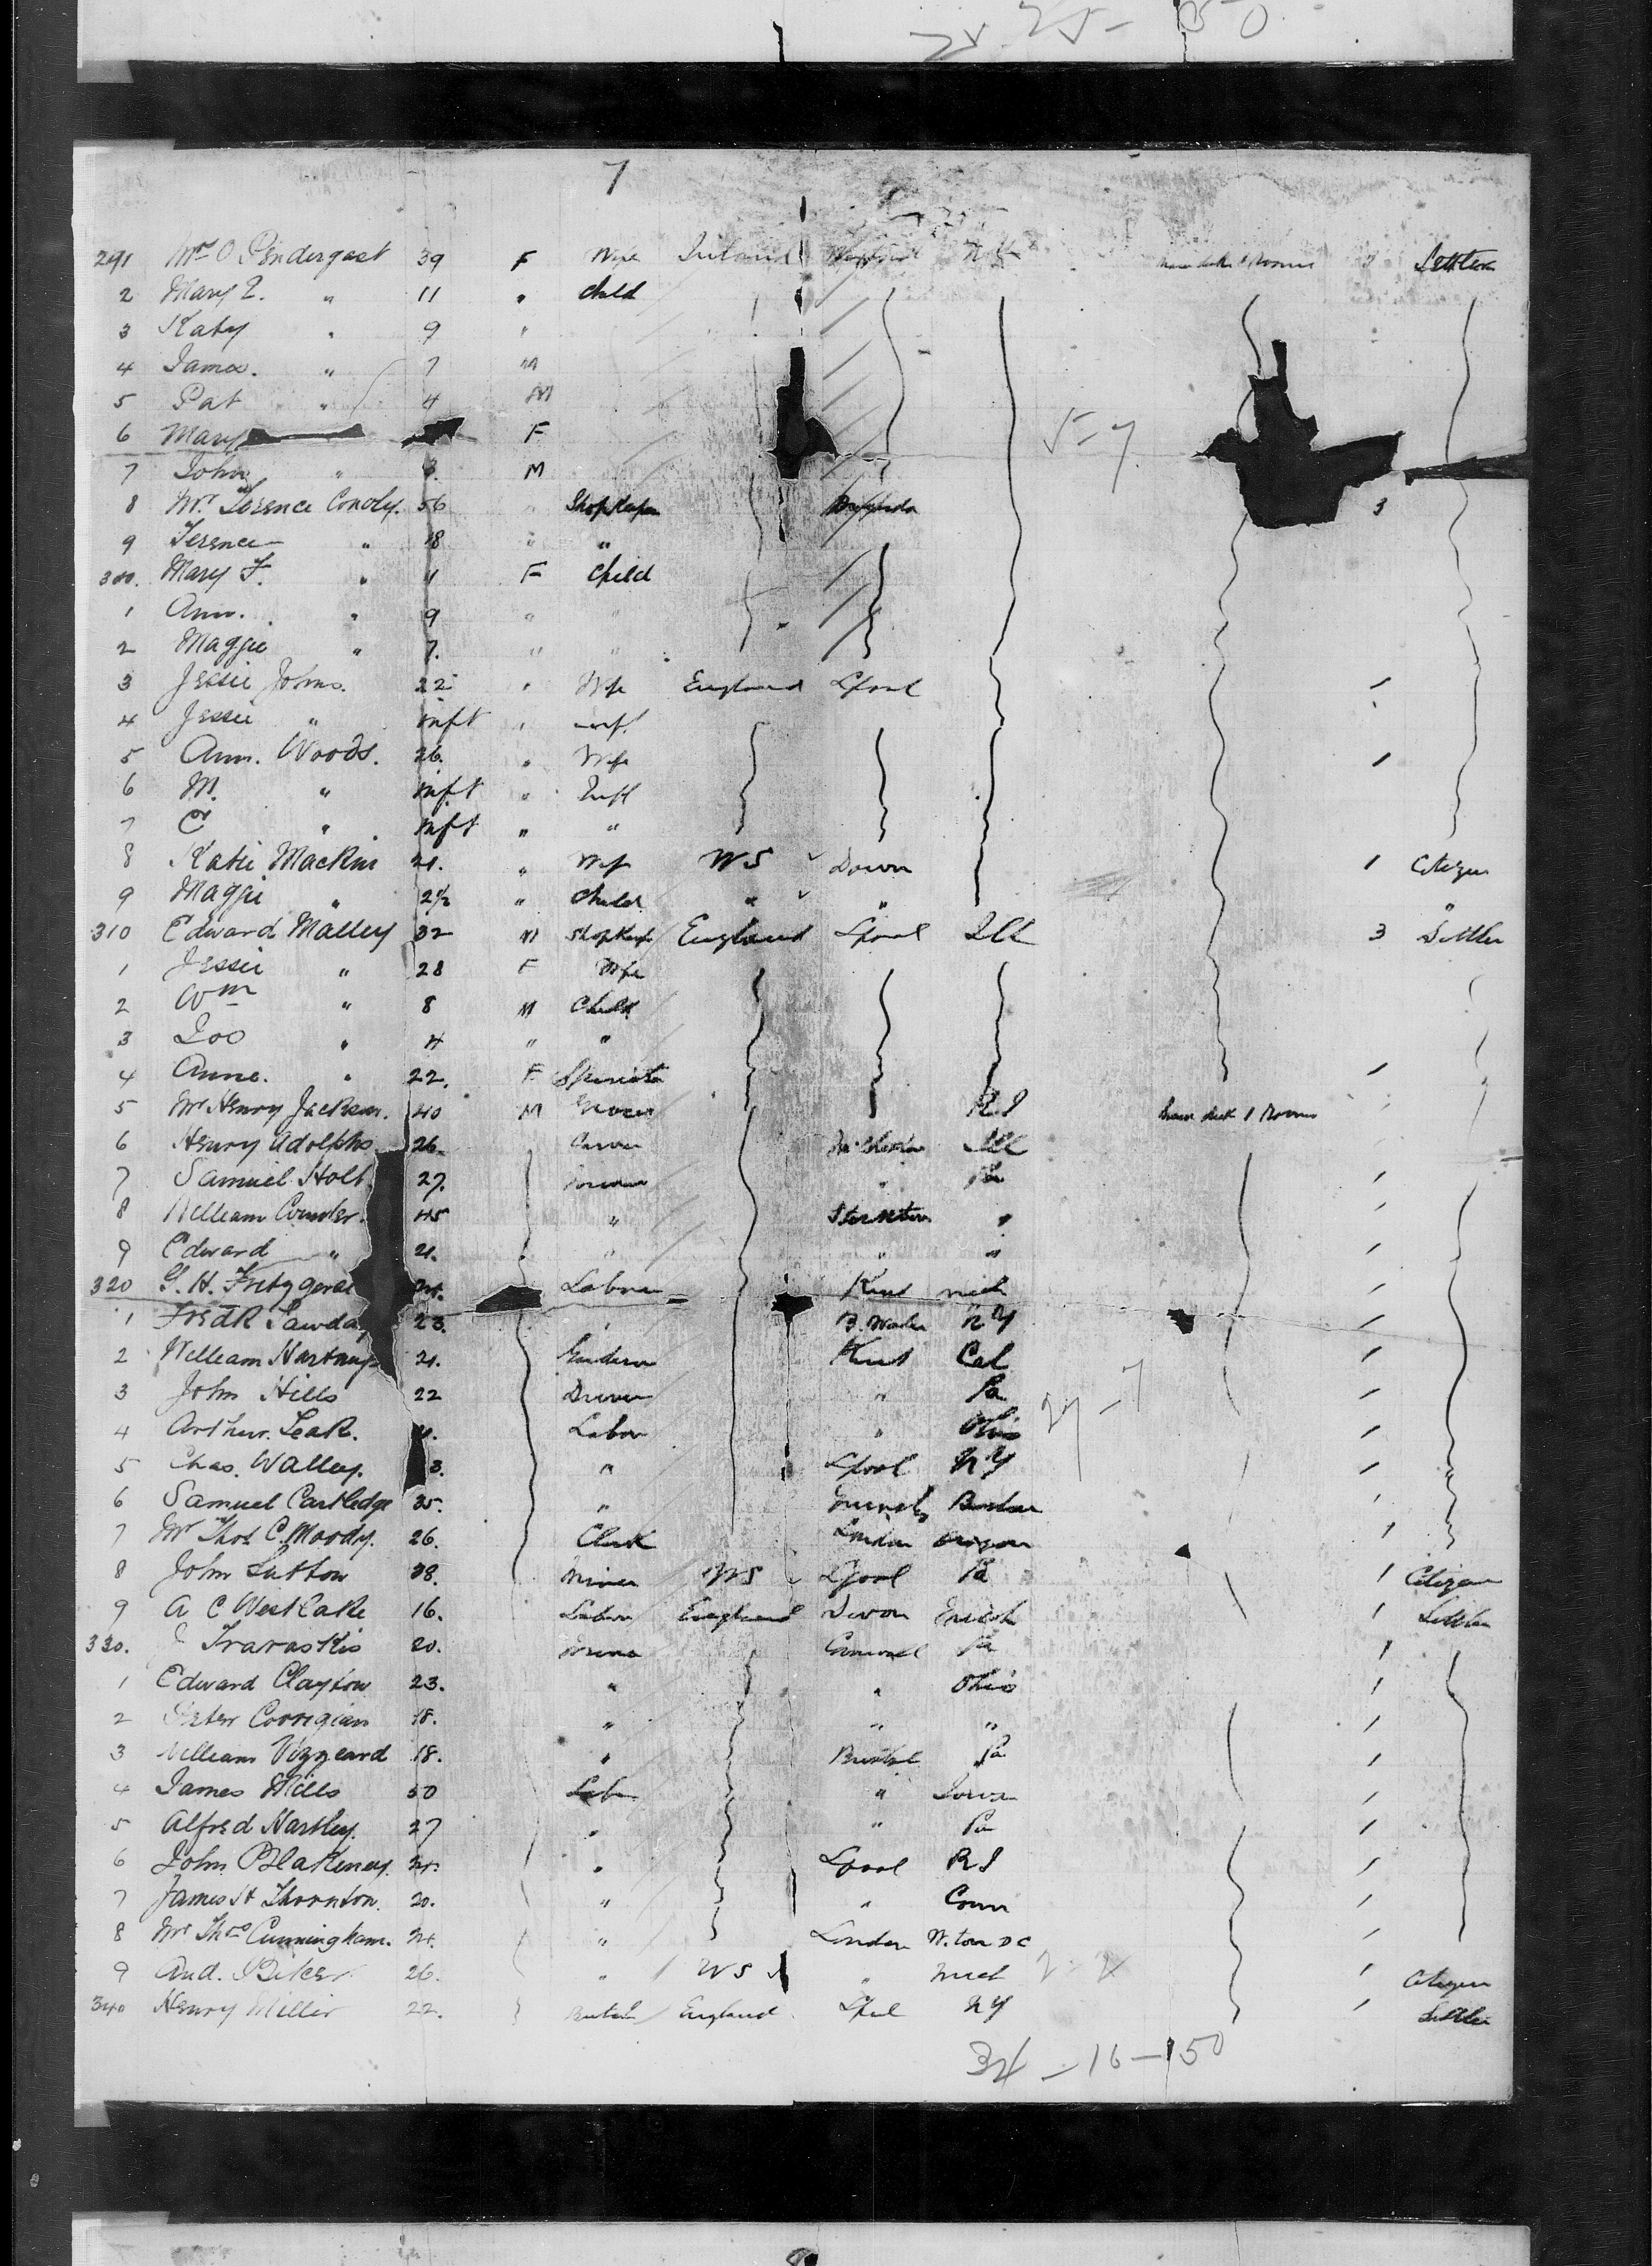 25 - 50
7
291 Mrs O Pendergast 39 F Wife Ireland N.Y. 3 Settler
2 Mary E. " 11 " Child
3 Katy " 9 "
4 James. " 7 M
5 Pat " 4 M
6 Mary F 5-7
7 John " 3. M
8 Mr. Terence Conoly. 56 " Shopkeeper 3
9 Terence " 18 " "
300. Mary F. " 11 F Child
1 Ann. " 9 " "
2 Maggie " 7. " "
3 Jessie Johns. 22 " Wife England Lpool 1
4 Jessie " inft " inft.
5 Ann. Woods. 26. " Wife 1
6 M. " inft " Inft
7 C " inft " "
8 Katie Mackin 21. " Wife US Down 1 Citizen
9 Maggie " 2½ " Child " " "
310 Edward Malley 32 M Shopkeep England Lpool Ill 3 Settler
1 Jessie " 28 F Wife
2 Wm " 8 M Child
3 Joo " 4 " "
4 Anne. " 22. F Spinster 1
5 Mr Henry Jackson. 40 M Grocer R I
6 Henry Adolphs 26. Carver Ill
7 Samuel Holt. 27. " Pa 1
8 William Counter. 45 " Stockton " 1
9 Edward " 21. " " " 1
320 G. H. Fitzgera 24. Labour Kent Mich 1
1 Fredk Sawda 23. " N Y 1
2 William Hartnup 21. Kent Cal 1
3 John Hills 22 Driver " Pa 1 27-7
4 Arthur. Leak. Labor " Ohio 1
5 Chas. Walley. 3. " Lpool N Y 1
6 Samuel Cartledge 35. " Boston 1
7 Mr Thos. C. Moody. 26. Clerk London Oregon 1
8 John Sutton 38. Miner US Lpool Pa 1 Citizen
9 A C Westlake 16. Labour England Devon Mich 1 Settler
330. J Travaskis 20. Miner Cornwall Pa 1
1 Edward Clayton 23. " " Ohio 1
2 Peter Corrigian 18. " " " 1
3 William Vizzeard 18. " Bristol Pa 1
4 James Mills 50 Labr " Iowa 1
5 Alfred Hartley. 27 " " Pa 1
6 John Blakeney. 24. " Lpool R I 1
7 James H Thornton. 20. " " Conn 1
8 Mr Thos Cunningham. 24. " London W. ton D C 1
9 And. 26. " US " Mich 1 Citizen
340 Henry Miller 22. England Lpool N Y 1 Settler
34 - 16 - 150